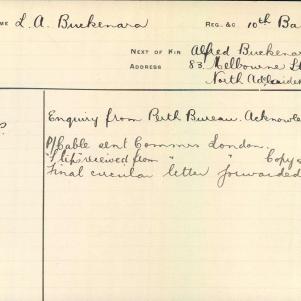 ME L. A. Buckenara REG. &c 10th Ba
NEXT OF KIN Alfred Buckenar
ADDRESS 83. Melbourne St
North Adelaide
Enquiry from Perth Bureau. Acknowle
P/Cable sent Commrs London.
"Slip" received from " " Copy
Final circular letter forwarded